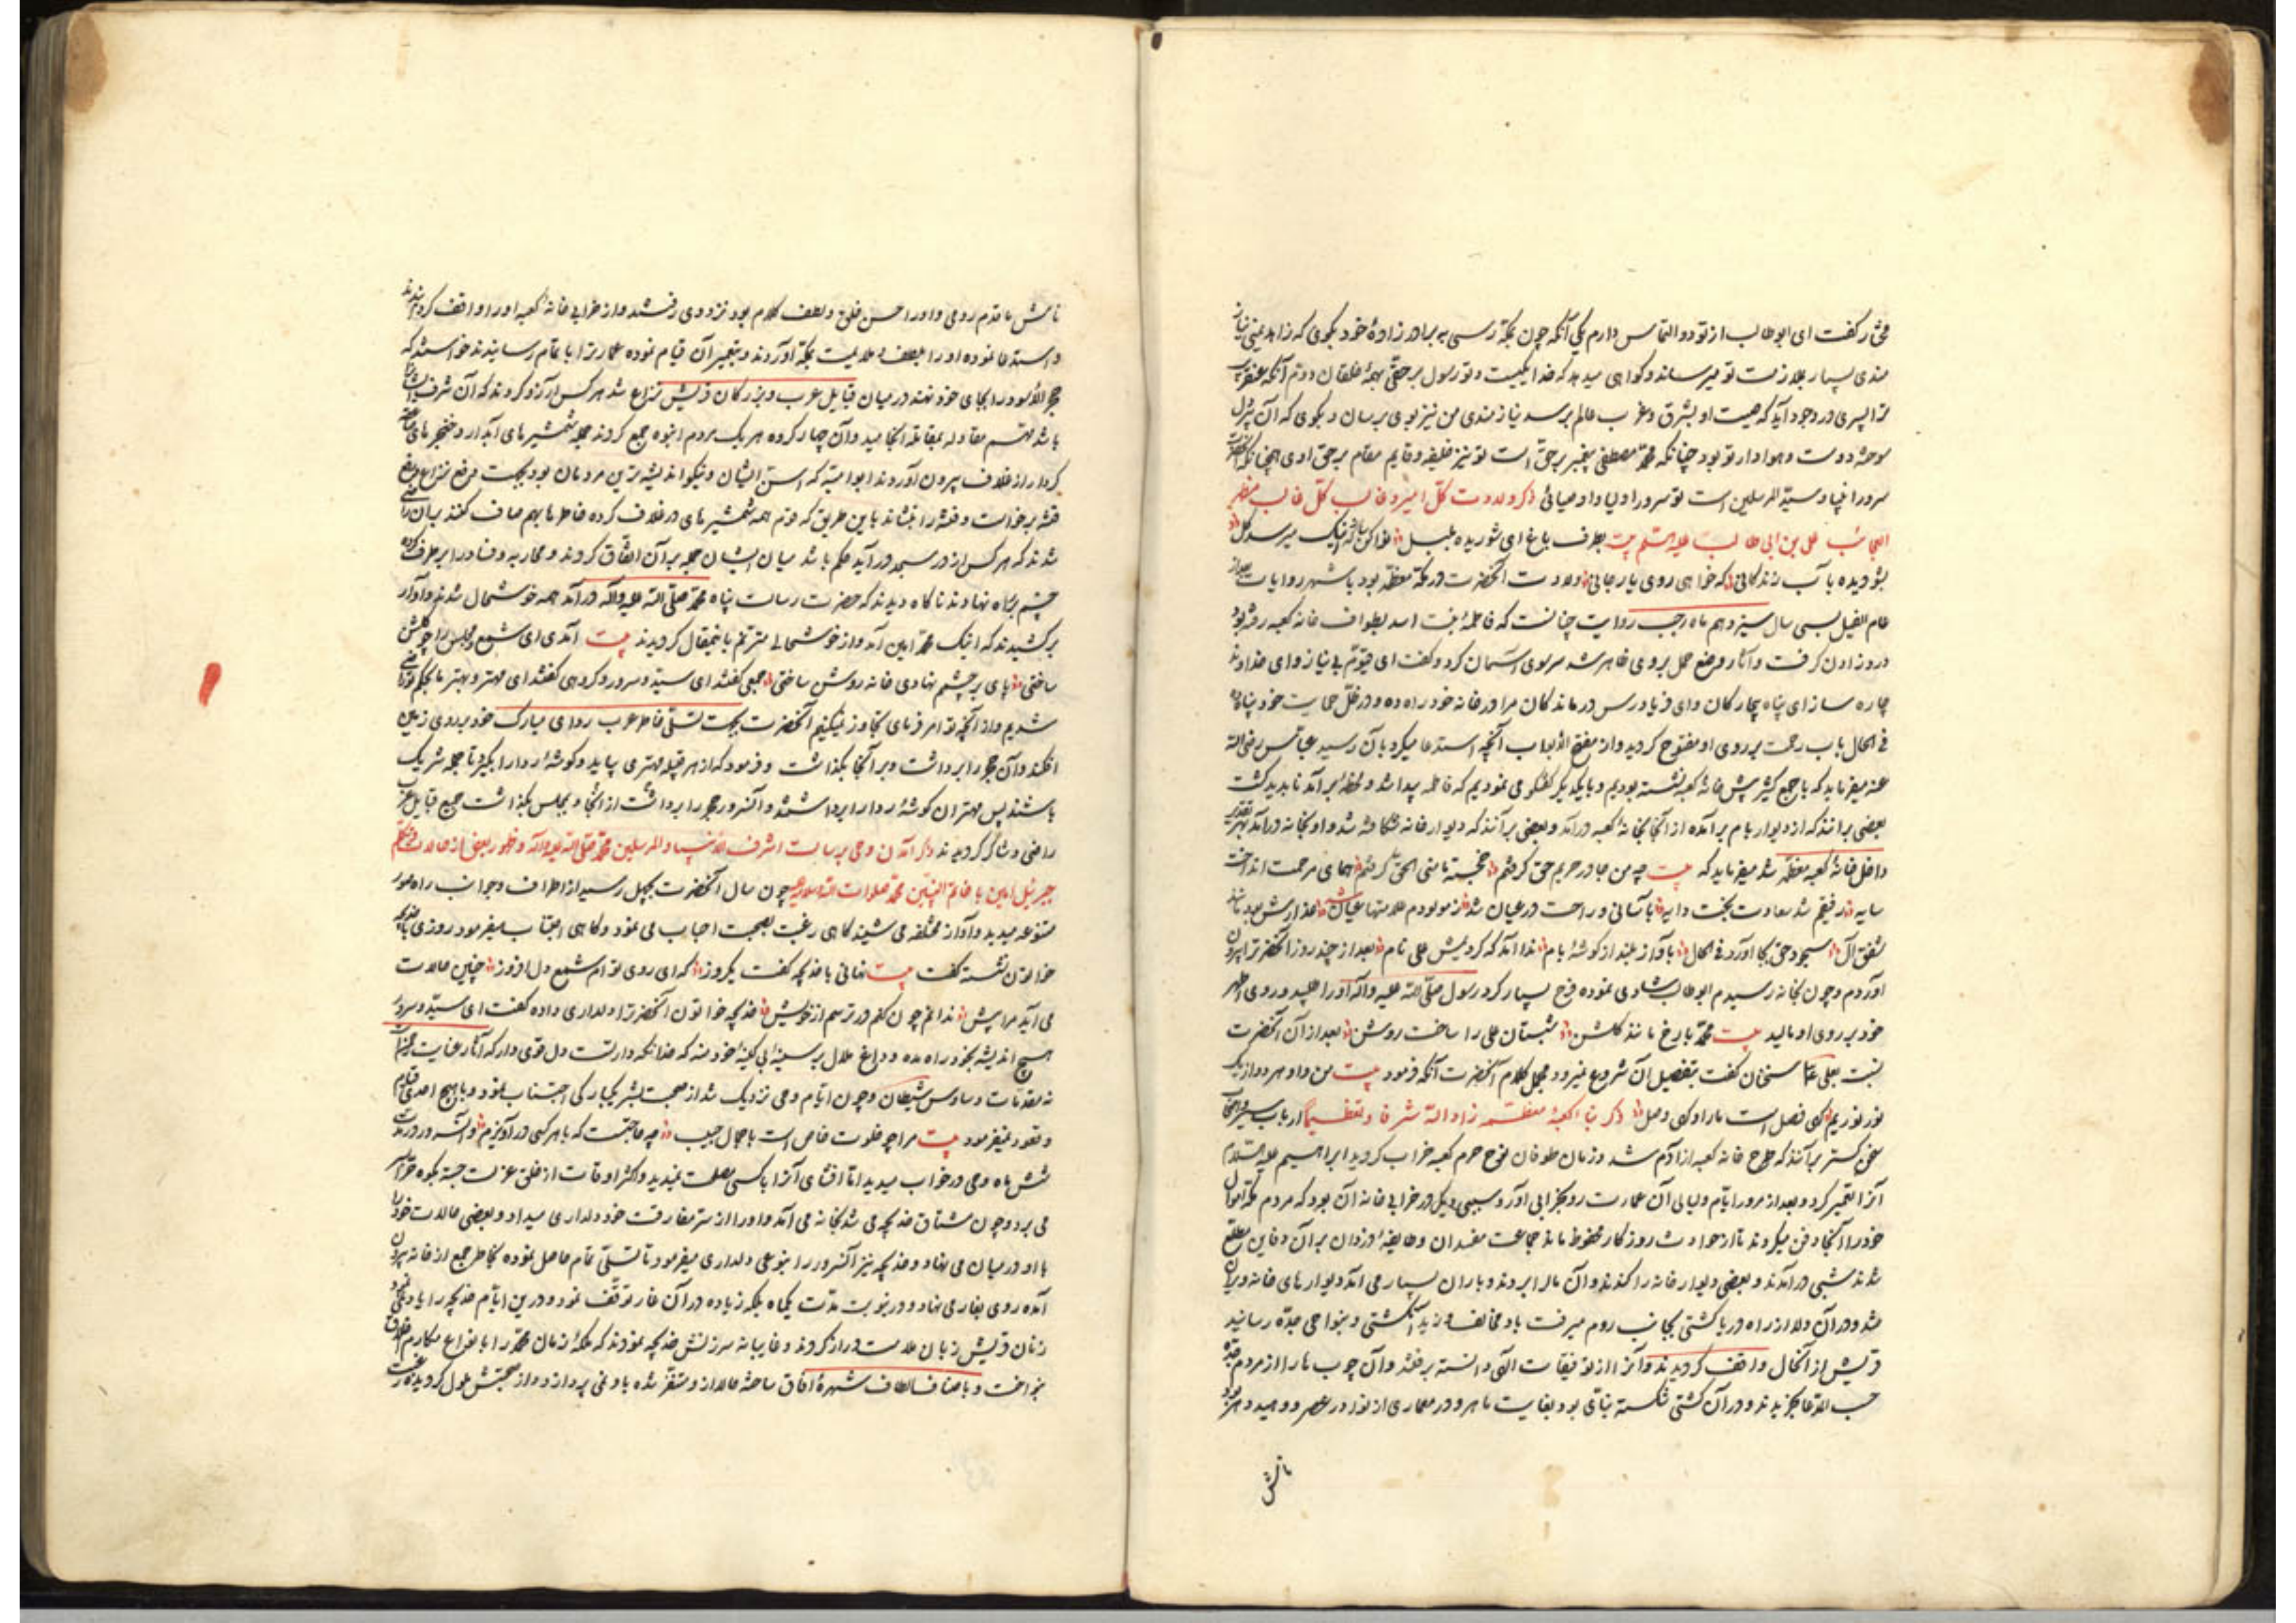 مختار گفت ای ابوطالب از تو دو التماس دارم یکی آنکه چون بمکه رسی به برادرزادهٔ خود بگوی که زاهد یمنی نیاز
مندی بسیار بملازمت تو میرساند و گواهی میدهد که خدا یکیست و تو رسول بر حقی بهمهٔ خلقان دوم آنکه عنقریب
ترا پسری در وجود آید که صیت او بشرق و غرب عالم برسد نیازمندی من نیز بوی برسان و بگوی که آن
دوست و هوادار تو بود چنانکه محمد مصطفی پیغمبر بر حق است تو نیز خلیفه و قایم مقام بر حق اوی همچنانکه
سرور انبیا و سید المرسلین است تو سرور اولیا و اوصیائی ذکر ولادت کل امیر و غالب کل غالب مظهر
العجائب علی بن ابی طالب علیه السلم بیت بطرف باغ ای شوریده بلبل نوا کن ساز کاینک میرسد گل
بشو دیده بآب زندگانی که خواهی روی یار جانی ولادت آنحضرت در مکه معظمه بود باشهر روایات بعد از
عام الفیل بسی سال سیزدهم ماه رجب روایت چنانست که فاطمه بنت اسد بطواف خانه کعبه رفته بود
درد زادن گرفت و آثار وضع حمل بر وی ظاهر شد سر بسوی آسمان کرد و گفت ای قیوم بی نیاز و ای خداوند
چاره ساز ای پناه بیچارگان و ای فریادرس درماندگان مرا در خانه خود راه ده و در ظل حمایت خود پناه ده
فی الحال باب رحمت بر روی او مفتوح گردید و از مفتح الابواب آنچه استدعا میکرد بآن رسید عباس رضی الله
عنه میفرماید که با جمع کثیر پیش خانهٔ کعبه نشسته بودیم و با یکدیگر گفتگو می نمودیم که فاطمه پیدا شد و لحظهٔ برآمد ناپدید گشت
بعضی برانند که از دیوار بام برآمده از آنجا بخانهٔ کعبه درآمد و بعضی برآنند که دیوار خانه شکافته شد و او بخانه درآمد بهر تقدیر
داخل خانهٔ کعبه معظمه شد میفرماید که بیت چه من جا در حریم حق گرفتم خجسته نامنی الحق گرفتم همای مرحمت انداخت
سایه رفیقم شد سعادت بخت دایه بآسانی و راحت در عیان شد ز مولودم علامتها عیان شد
شفق آل سجود حق بجا آورد فی الحال بآواز بلند از گوشهٔ بام ندا آمد که کردیش علی نام بعد از چند روز آنحضرت را بیرون
آوردم و چون بخانه رسیدم ابوطالب شادی نموده فرح بسیار کرد رسول صلی الله علیه و آله او را طلبید و روی اطهر
خود بر روی او مالید بیت محمد با رخ مانند گلشن شبستان علی را ساخت روشن بعد از آن آنحضرت
نسبت بعلی سخنان گفت بتفصیل آن شروع نمیرود مجمل کلام آنحضرت آنکه فرمود بیت من و او هر دو از یک
نور نوریم کی فصل است ما را و کی وصل ذکر بناء کعبهٔ معظمه زاد الله شرفا و تعظیما ارباب سیر
سخن گستر برآنند که طرح خانه کعبه از آدم شد و زمان طوفان نوح حرم کعبه خراب گردید ابراهیم علیه السلام
آنرا تعمیر کرد و بعد از مرور ایام و لیالی آن عمارت رو بخرابی آورد و سببی دیگر در خرابی خانه آن بود که مردم مکه اموال
خود را آنجا دفن میکردند تا از حوادث روزگار محفوظ ماند جماعت مفسدان و طایفهٔ دزدان بر آن دفاین مطلع
شدند شبی درآمدند و بعضی دیوار خانه را کندند و آن مال را بردند و باران بسیار می آمد و دیوارهای خانه ویران
شد و در آن ولا از راه دریا کشتی بجانب روم میرفت باد مخالف وزید آن کشتی بنواحی جده رسانید
قریش از آنحال واقف گردیدند و آنرا از توفیقات الهی دانسته برفتند و آن چوب ها را از مردم جده
حسب المدعا بخریدند و در آن کشتی شکسته بنائی بود بغایت ماهر و در معماری از نوادر عصر و وحید دهر بود
نامش
نامش باقوم رومی و او را حسن خلق و لطف کلام بود نزد وی رفتند و از خرابی خانهٔ کعبه او را واقف گردانیدند
و استدعا نموده او را بلطف و ملایمت بمکه آوردند و بتعمیر آن قیام نموده عمارت را باتمام رسانیدند خواستند که
حجر الاسود را بجای خود نهند در میان قبایل عرب و بزرگان قریش نزاع شد هر کس آرزو کردند که آن شرف ایشان را
باشد مهم مقاوله بمقاتله انجامید و آن چهار گروه هر یک مردم انبوه جمع کردند جمله شمشیرهای آبدار و خنجرهای
کردار از غلاف بیرون آوردند ابوامیه که اسن ایشان و نیکو اندیشه ترین مردمان بود بجهت رفع نزاع و دفع
فتنه برخواست و فتنه را بنشاند باین طریق که قوم همه شمشیرهای در غلاف کرده خاطر با بهم صاف کنند بر آن راضی
شدند که هر کس از در مسجد درآید حکم باشد میان ایشان جمله بر آن اتفاق کردند و محاربه و فساد را بر طرف کرده
چشم براه نهادند ناگاه دیدند که حضرت رسالت پناه محمد صلی الله علیه و آله درآمد همه خوشحال شدند و آواز
برکشیدند که اینک محمد امین آمد و از خوشحالی مترنم باینمقال گردیدند بیت آمدی ای شمع و مجلس را چو گلشن
ساختی پای بر چشم نهادی خانه روشن ساختی جمعی گفتند ای سید و سرور و گروهی گفتند ای مهتر و بهتر ما بحکم تو راضی
شدیم و از آنچه تو امر فرمای تجاوز نمیکنیم آنحضرت بجهت تسلی خاطر عرب ردای مبارک خود بر روی زمین
افکند و آن حجر را برداشت و بر آنجا بگذاشت و فرمود که از هر قبیله مهتری بیاید و گوشهٔ ردا را بگیرد تا جمله شریک
باشند پس مهتران گوشهٔ ردا را برداشتند و آنسرور حجر را برداشت از آنجا و بمجلس بگذاشت جمیع قبایل عرب
راضی و شاکر گردیدند ذکر آمدن وحی برسالت اشرف الانبیاء و المرسلین محمد صلی الله علیه و آله و ظهور بعضی از حالات
جبرئیل امین با خاتم النبیین محمد صلوات الله و سلامه علیه چون سال آنحضرت بچهل رسید از اطراف و جوانب راه صور
متنوعه میدید و آواز مختلفه می شنید گاهی رغبت بصحبت احباب می نمود و گاهی اجتناب میفرمود روزی با خدیجه
خواتون نشسته گفت بیت نهانی با خدیجه گفت یکروز که ای روی توام شمع دل افروز چنین حالات
می آید مرا پیش ندانم چون کنم در ترسم از خویش خدیجه خواتون آنحضرت را دلداری داده گفت ای سید و سرور
هیچ اندیشه بخود راه مده و داغ ملال بر سینهٔ بی کینهٔ خود منه که خدا نگهدار تست دل قوی دار که آثار عنایت
نه مقدمات وساوس شیطان و چون ایام وحی نزدیک شد از صحبت بشر یکبارگی اجتناب نمود و با هیچ احدی قیام
و قعود نمیفرمود بیت مرا چو خلوت خاص است با جمال حبیب چه حاجتست که با هر کسی درآویزم
شش ماه وحی در خواب میدید اما افشای آنرا با کسی مصلحت نمیدید و اکثر اوقات از خلق عزلت جسته بکوه حرا
می برد و چون مشتاق خدیجه می شد بخانه می آمد و او را از سر مفارقت خود دلداری میداد و بعضی حالات خود را
با او در میان می نهاد و خدیجه نیز آنسرور را بنوعی دلداری میفرمود تا تسلی تمام حاصل نموده بخاطر جمع از خانه بیرون
آمده روی بغار می نهاد و در نوبت مدت یکماه بلکه زیاده در آن غار توقف نمود و درین ایام خدیجه را یاد نمی نمود
زنان قریش زبان ملامت دراز کردند و غایبانه سرزنش خدیجه نمودند که ملکهٔ زمان محمد را بانواع مکارم اخلاق
بنواخت و باصناف الطاف شهرهٔ آفاق ساخته حالا از و متنفر شده با و نمی پردازد و از صحبتش ملول گردیده